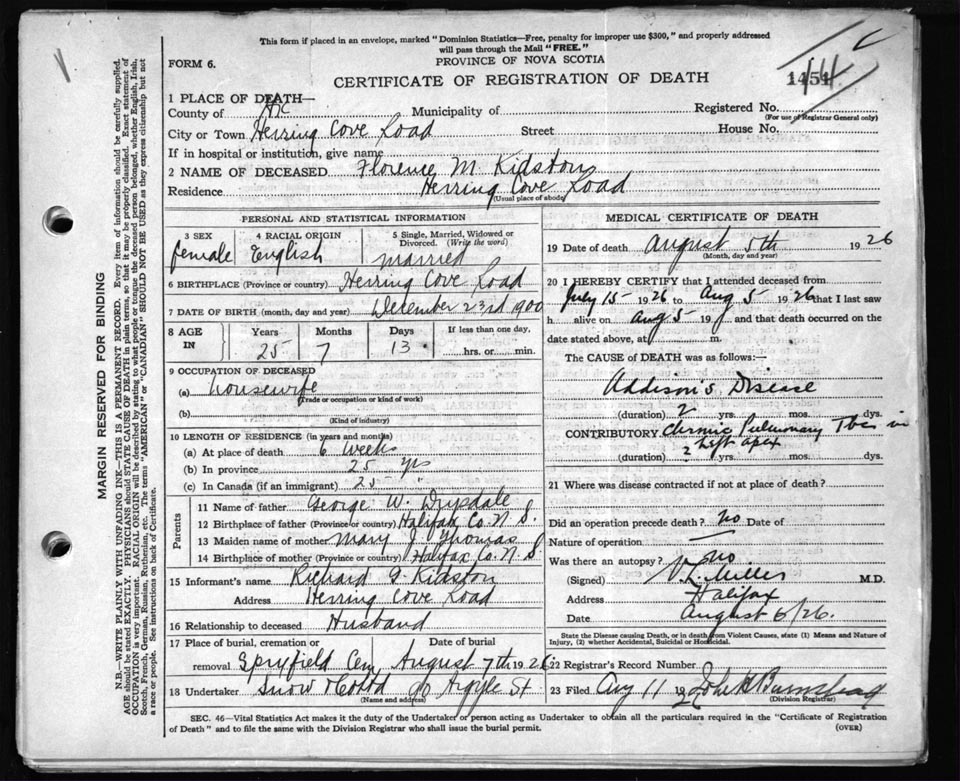 This form if placed in an envelope, marked "Dominion Statistics—Free, penalty for improper use $300," and properly addressed
will pass through the Mail "FREE."
FORM 6.
PROVINCE OF NOVA SCOTIA
CERTIFICATE OF REGISTRATION OF DEATH
1451
1 PLACE OF DEATH—
County of Hx Municipality of Registered No.
(For use of Registrar General only)
City or Town Herring Cove Road Street House No.
If in hospital or institution, give name
2 NAME OF DECEASED Florence M. Kidston
Residence Herring Cove Road
(Usual place of abode)
PERSONAL AND STATISTICAL INFORMATION
3 SEX 4 RACIAL ORIGIN 5 Single, Married, Widowed or Divorced. (Write the word)
female English married
6 BIRTHPLACE (Province or country) Herring Cove Road
7 DATE OF BIRTH (month, day and year) December 23rd 1900
8 AGE IN Years Months Days If less than one day,
25 7 13 hrs. or min.
9 OCCUPATION OF DECEASED
(a) housewife
(Trade or occupation or kind of work)
(b)
(Kind of industry)
10 LENGTH OF RESIDENCE (in years and months)
(a) At place of death 6 weeks
(b) In province 25 yrs
(c) In Canada (if an immigrant) 25 "
Parents
11 Name of father George W. Drysdale
12 Birthplace of father (Province or country) Halifax Co. N.S.
13 Maiden name of mother Mary J. Thomas
14 Birthplace of mother (Province or country) Halifax Co. N.S.
15 Informant's name Richard G. Kidston
Address Herring Cove Road
16 Relationship to deceased Husband
17 Place of burial, cremation or removal Date of burial
Spryfield Cem. August 7th 1926
18 Undertaker Snow & Co Ltd 90 Argyle St
(Name and address)
MEDICAL CERTIFICATE OF DEATH
19 Date of death August 5th 1926
(Month, day and year)
20 I HEREBY CERTIFY that I attended deceased from
July 15 1926 to Aug 5 1926 that I last saw
h alive on Aug 5 19 and that death occurred on the
date stated above, at m.
The CAUSE OF DEATH was as follows:
Addison's Disease
(duration) 2 yrs. mos. dys.
CONTRIBUTORY Chronic Pulmonary Tbcs in
Left apex
(duration) 2 yrs. mos. dys.
21 Where was disease contracted if not at place of death?
Did an operation precede death? no Date of
Nature of operation
Was there an autopsy? no
(Signed) Miller M.D.
Address Halifax
Date August 6/26.
State the Disease causing Death, or in death from Violent Causes, state (1) Means and Nature of
Injury, (2) whether Accidental, Suicidal or Homicidal.
22 Registrar's Record Number
23 Filed Aug 11 192
(Division Registrar)
SEC. 46—Vital Statistics Act makes it the duty of the Undertaker or person acting as Undertaker to obtain all the particulars required in the "Certificate of Registration
of Death" and to file the same with the Division Registrar who shall issue the burial permit.
(OVER)
MARGIN RESERVED FOR BINDING
N.B.—WRITE PLAINLY WITH UNFADING INK—THIS IS A PERMANENT RECORD. Every item of information should be carefully supplied.
AGE should be stated EXACTLY. PHYSICIANS should STATE CAUSE OF DEATH in plain terms, so that it may be properly classified. Exact statement of
OCCUPATION is very important. RACIAL ORIGIN will be described by stating to what people or tongue the deceased person belonged, whether English, Irish,
Scotch, French, German, Russian, Ruthenian, etc. The terms "AMERICAN" or "CANADIAN" SHOULD NOT BE USED as they express citizenship but not
a race or people. See instructions on back of Certificate.